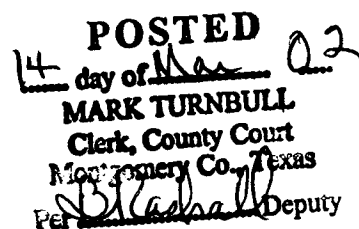 POSTED
14 day of Mar 02
MARK TURNBULL
Clerk, County Court
Montgomery Co., Texas
Per Deputy